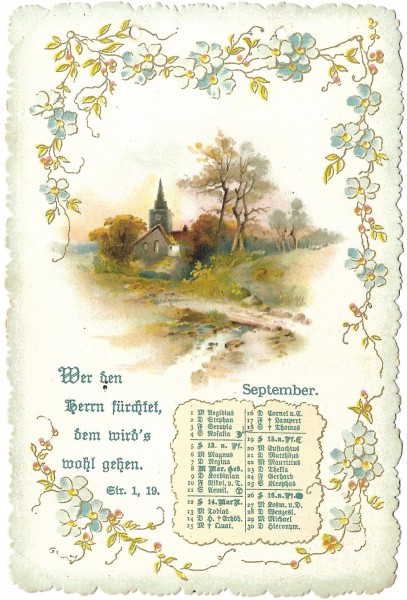 Wer den
Herrn fürchtet,
dem wird's
wohl gehen.
Sir. 1, 19.
September.
1 M Aegidius
2 D Stephan
3 F Serapia
4 S Rosalia
5 S 13. n. Pf.
6 M Magnus
7 D Regina
8 M Mar. Geb.
9 D Korbinian
10 F Nikol. v. T.
11 S Aemil.
12 S 14. Mar N.
13 M Tobias
14 D H. † Erhöh.
15 M † Quat.
16 D Cornel u. C.
17 F † Lampert
18 S † Thomas
19 S 15. n. Pf.
20 M Eustachius
21 D Matthäus
22 M Mauritius
23 D Thekla
24 F Gerhard
25 S Kleophas
26 S 16. n. Pf.
27 M Kosm. u. D.
28 D Wenzesl.
29 M Michael
30 D Hieronym.